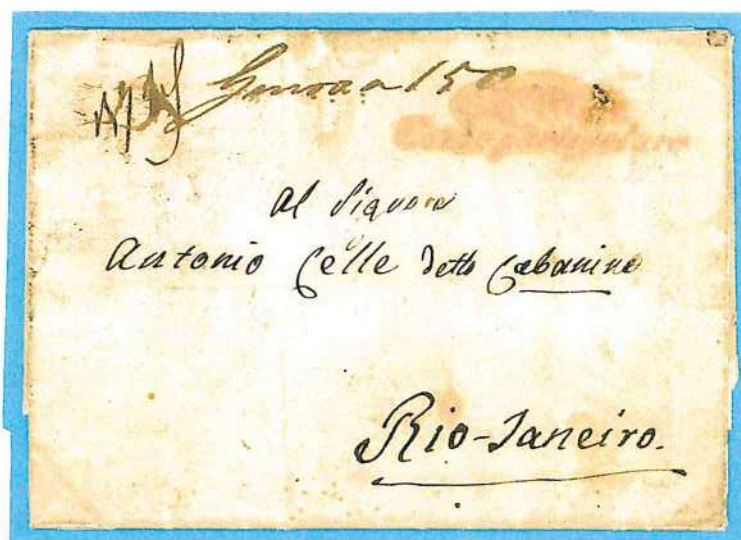 Genova 150
Al Signore
Antonio Celle detto Cabanine
Rio-Janeiro.